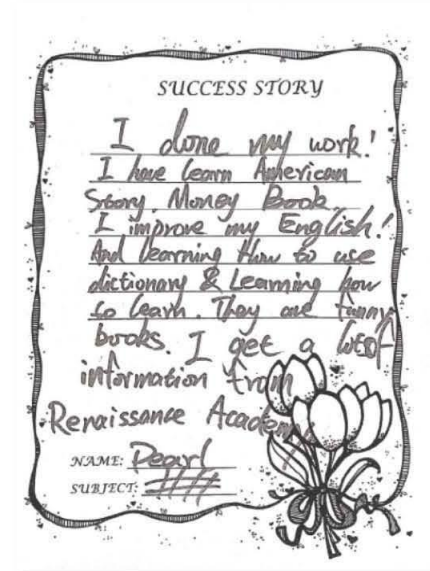 SUCCESS STORY
I done my work!
I have learn American
Story. Money Book
I improve my English!
And learning How to use
dictionary & Learning how
to learn. They are funny
books. I get a lotsof
information from
Renaissance Academy
NAME: Pearl
SUBJECT: